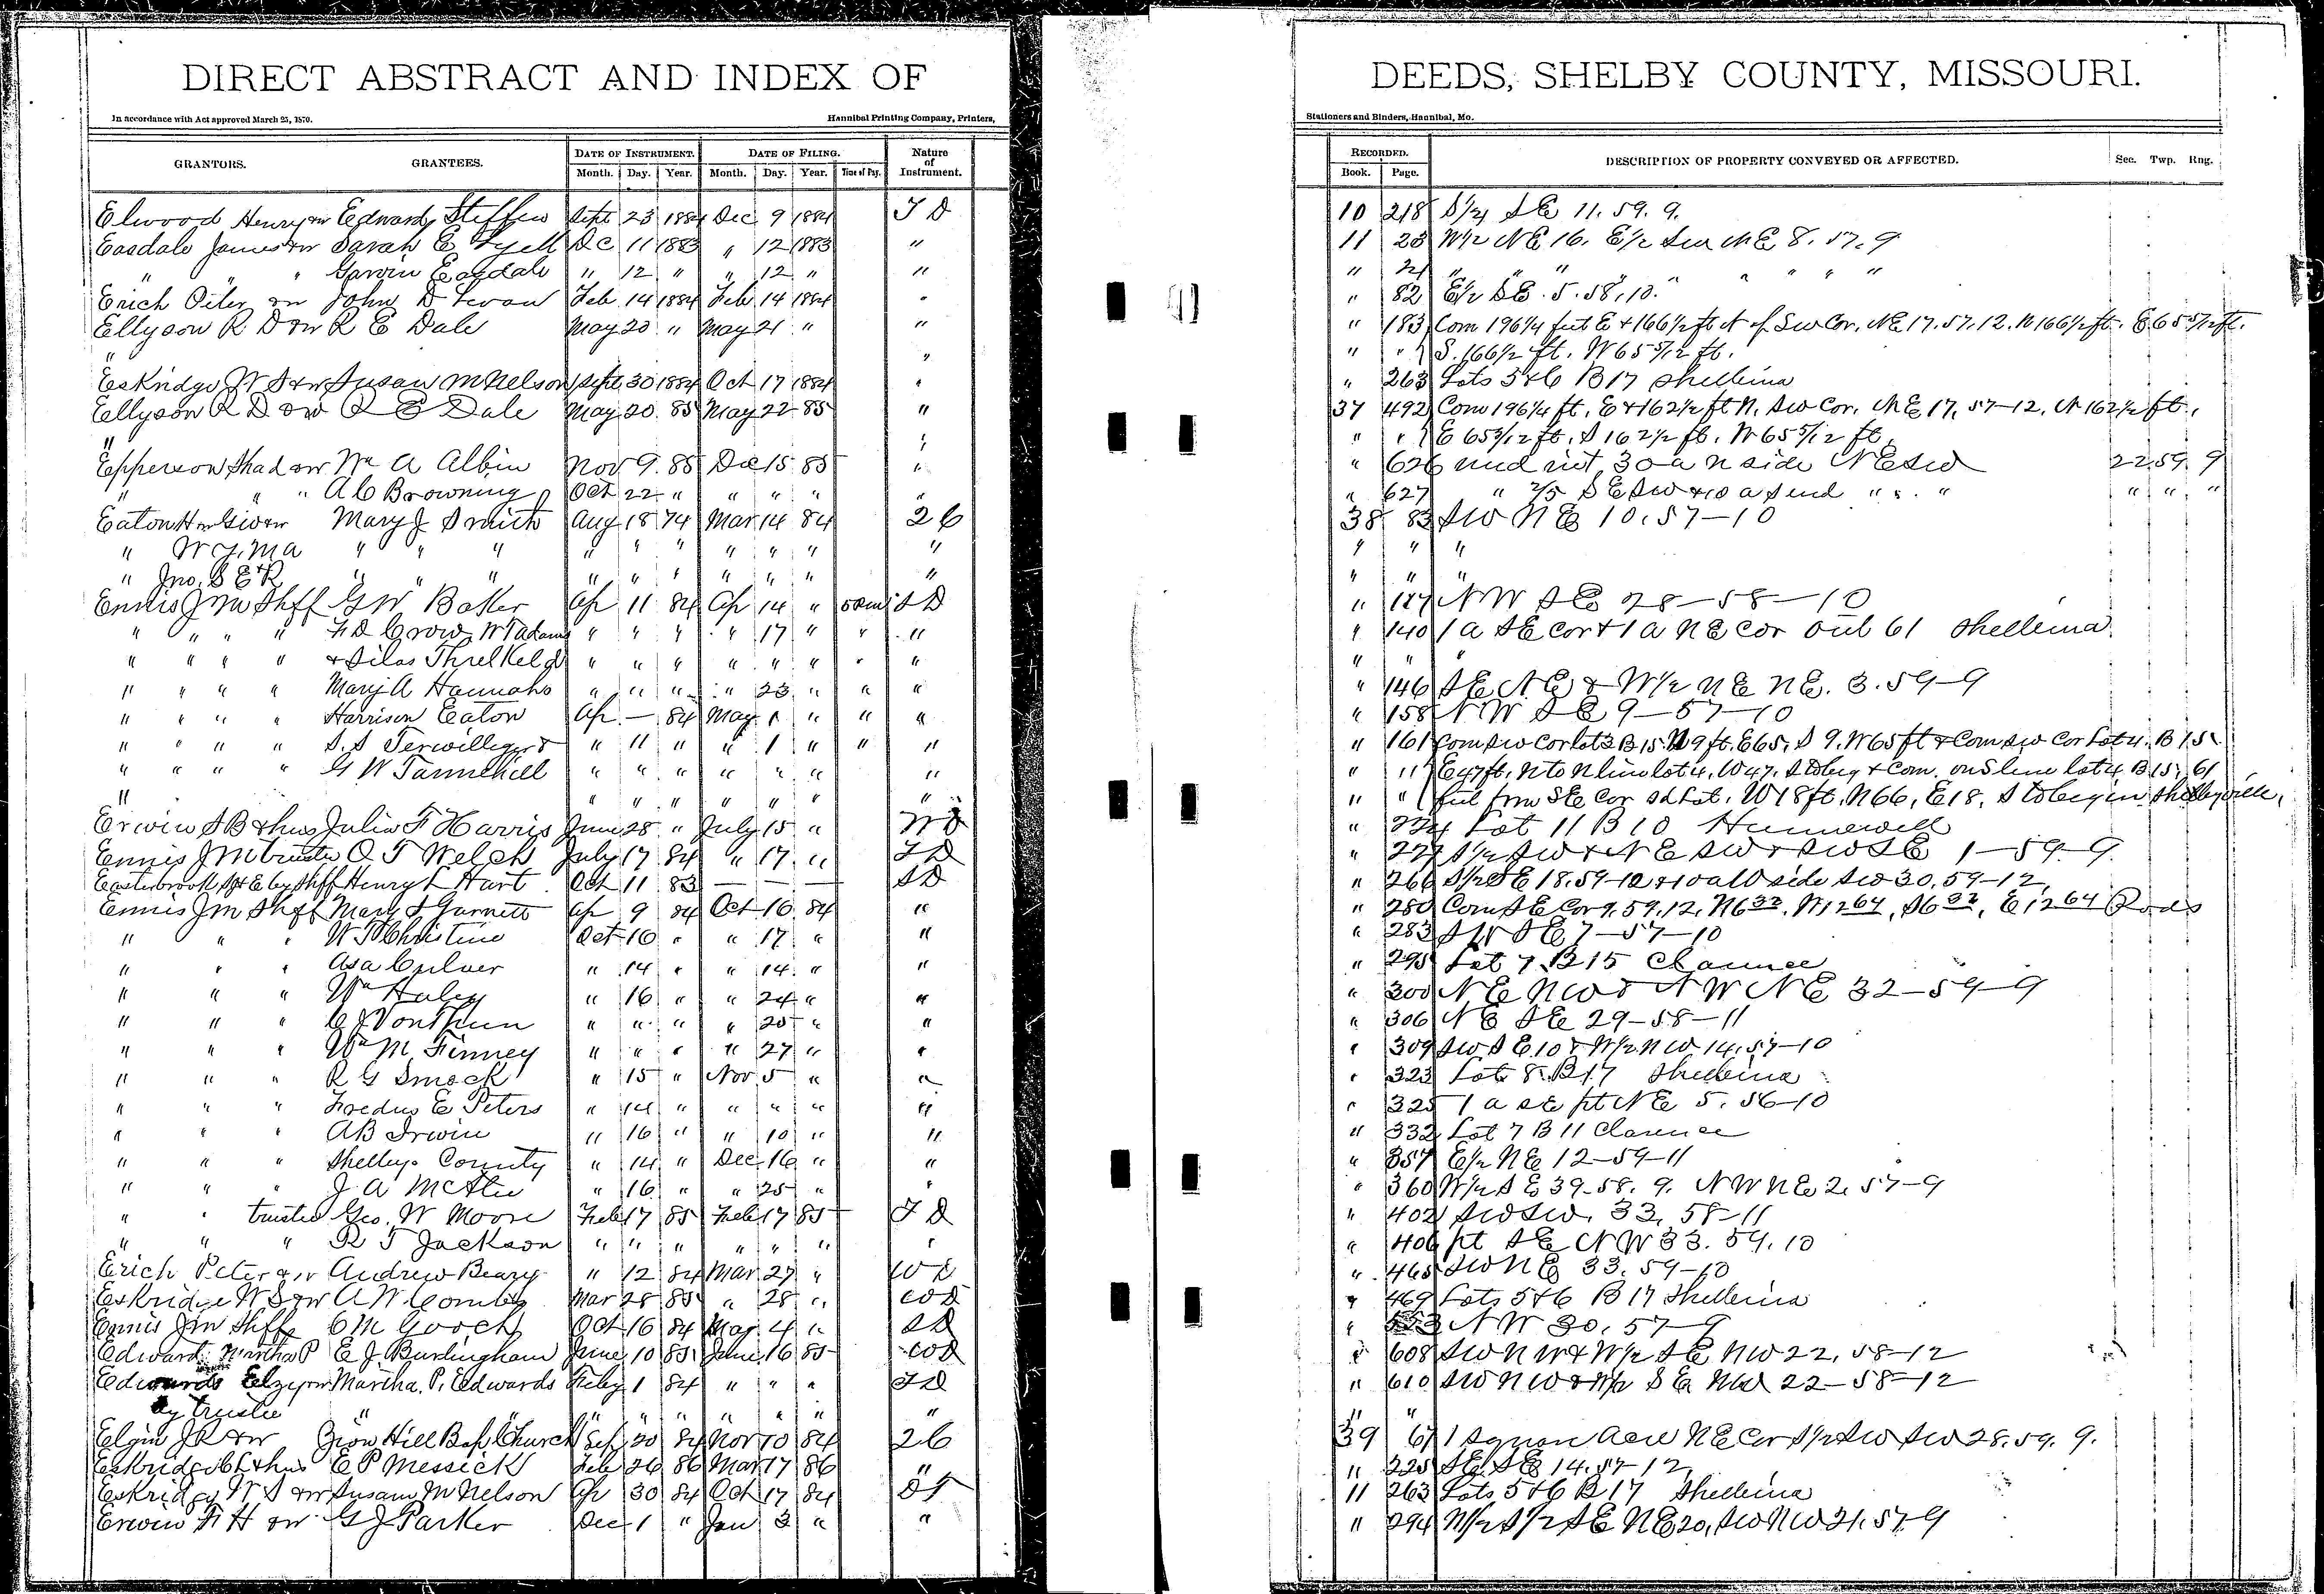 DIRECT ABSTRACT AND INDEX OF DEEDS, SHELBY COUNTY, MISSOURI.
In accordance with Act approved March 25, 1870. Hannibal Printing Company, Printers, Stationers and Binders, Hannibal, Mo.
GRANTORS. GRANTEES. DATE OF INSTRUMENT. DATE OF FILING. Nature of Instrument. RECORDED. DESCRIPTION OF PROPERTY CONVEYED OR AFFECTED. Sec. Twp. Rng.
Month. Day. Year. Month. Day. Year. Time of Day. Book. Page.
Elwood Henry & w Edward Steffen Sept 23 1884 Dec 9 1884 T D 10 218 SE 11. 59. 9.
Easdale James & w Sarah E Lyell Dc 11 1883 " 12 1883 " 11 23 W1/2 NE 16. E1/2 SW NE 8. 57. 9
" " " Easdale " 12 " " 12 " " " " " " " " " " "
Erich Peter & w John D Feb 14 1884 Feb 14 1884 " " 82 E1/2 SE. 5. 58. 10.
Ellyson R D & w R E Dale May 20 " May 21 " " " 183 Com 196 1/4 feet E & 166 1/2 ft N of SW Cor. NE 17. 57. 12. N 166 1/2 ft. E 65 5/12 ft.
" " " " S. 166 1/2 ft. W 65 5/12 ft.
Eskridge W S & w Susan M Nelson Sept 30 1884 Oct 17 1884 " " 263 Lots 5 & 6 B 17 Shelbina
Ellyson R D & w R E Dale May 20 85 May 22 85 " 37 492 Com 196 1/4 ft. E & 162 1/2 ft N. SW Cor. NE 17. 57-12. N 162 1/2 ft.
" " " " E 65 5/12 ft. S 162 1/2 ft. W 65 5/12 ft
Epperson Shad & w Wm A Albin Nov 9 85 Dec 15 85 " " 626 und int 30 a N side NE SW 22 59 9
" " " A C Browning Oct 22 " " " " " " 627 " 2/5 SE SW & 10 a S end " " " " " "
Eaton H & w Mary J Smith Aug 18 74 Mar 14 84 2 C 38 83 SW NE 10. 57-10
" W J, M A " " " " " " " " " " " " "
" Jno, S E R " " " " " " " " " " " "
Ennis J M Shff G W Baker Ap 11 84 Ap 14 " S D " NW SE 28-58-10
" " " " F D Crow, W T Adams " " " " 17 " " " " 140 1 a SE Cor & 1 a NE Cor Out 61 Shelbina
" " " " & Silas Threlkeld " " " " " " " " " " "
" " " " Mary A Hannah " " " " 23 " " " " 146 SE NE & W1/2 NE NE. 3. 59-9
" " " " Harrison Eaton Ap - 84 May 1 " " " " 158 NW SE 9-57-10
" " " " S. S Terwilliger & " 11 " " 1 " " " " 161 Com SW Cor Lot 3 B 15. N 9 ft. E 65, S 9. W 65 ft & Com SW Cor Lot 4. B 15.
" " " " G W Tannehill " " " " " " " " " E 47 ft. N to N line lot 4. W 47. S to beg & Com. on S line lot 4 B 15, 61
" " " " " " " " " " feet from SE Cor sd Lot. W 18 ft. N 66, E 18, S to begin Shelbyville,
Erwin S B & hus Julia F Harris June 28 " July 15 " W D " Lot 11 B 10 Hunnewell
Ennis J M trustee O T Welch July 17 84 " 17 " T D " 227 S1/2 SW & NE SW & SW SE 1-59-9.
Easterbrook by Shff Henry L Hart Oct 11 83 - - - S D " 266 S1/2 SE 18. 59-10 & 10 a W side SW 30. 59-12.
Ennis J M Shff Mary S Garnett Ap 9 84 Oct 16 84 " " 280 Com SE Cor 9. 59. 12. N 6 32, W 12 64, S 6 32, E 12 64 Rods
" " " W T Christine Oct 16 " " 17 " " " 283 SW SE 7-57-10
" " " Asa Culver " 14 " " 14 " " " 295 Lot 7. B 15 Clarence
" " " Wm Haley " 16 " " 24 " " " 300 NE NW & NW NE 32-59-9
" " " C J VonThun " " " " 25 " " " 306 NE SE 29-58-11
" " " Wm M. Finney " " " " 27 " " " 309 SW SE 10 & W1/2 NW 14. 57-10
" " " R G Smock " 15 " Nov 5 " " " 323 Lot 8. B 17 Shelbina
" " " E Peters " 14 " " " " " " 325 1 a SE pt NE 5. 56-10
" " " A B Irwin " 16 " " 10 " " " 332 Lot 7 B 11 Clarence
" " " Shelby County " 14 " Dec 16 " " " 357 E1/2 NE 12-59-11
" " " J A McAtee " 16 " 25 " " " 360 W1/2 SE 39-58. 9. NW NE 2. 57-9
" " trustee Geo. W Moore Feb 17 85 Feb 17 85 T D " 402 SW SW. 33. 58-11
" " " R T Jackson " " " " " " " " 406 pt SE NW 33. 59. 10
Erich Peter & w Andrew Beary " 12 84 Mar 27 " W D " 465 SW NE 33. 59-10
Eskridge W S & w A W Combs Mar 28 85 " 28 " W D " 469 Lots 5 & 6 B 17 Shelbina
Ennis J M Shff C M Gooch Oct 16 84 May 4 " S D " NW 30. 57-9
Edwards Martha P E J Burlingham June 10 85 June 16 85 W D " 608 SW NW & W1/2 SE NW 22. 58-12
Edwards Elzy & w Martha P. Edwards Feby 1 84 " " " T D " 610 SW NW & W1/2 SE NW 22-58-12
by trustee " " " " " " " " " " "
Elgin J R & w Zion Hill Bap. Church Sep 20 84 Nov 10 84 2 C 39 67 1 square acre NE Cor S1/2 SW SW 28. 59. 9.
Eskridge & hus E P Messick Feb 26 86 Mar 17 86 " " 225 SE SE 14. 57-12
Eskridge W S & w Susan M Nelson Ap 30 84 Oct 17 84 D T 11 263 Lots 5 & 6 B 17 Shelbina
Erwin F H & w G J Parker Dec 1 " Jan 3 " " 11 294 N1/2 S1/2 SE NE 20, SW NW 21. 57-9